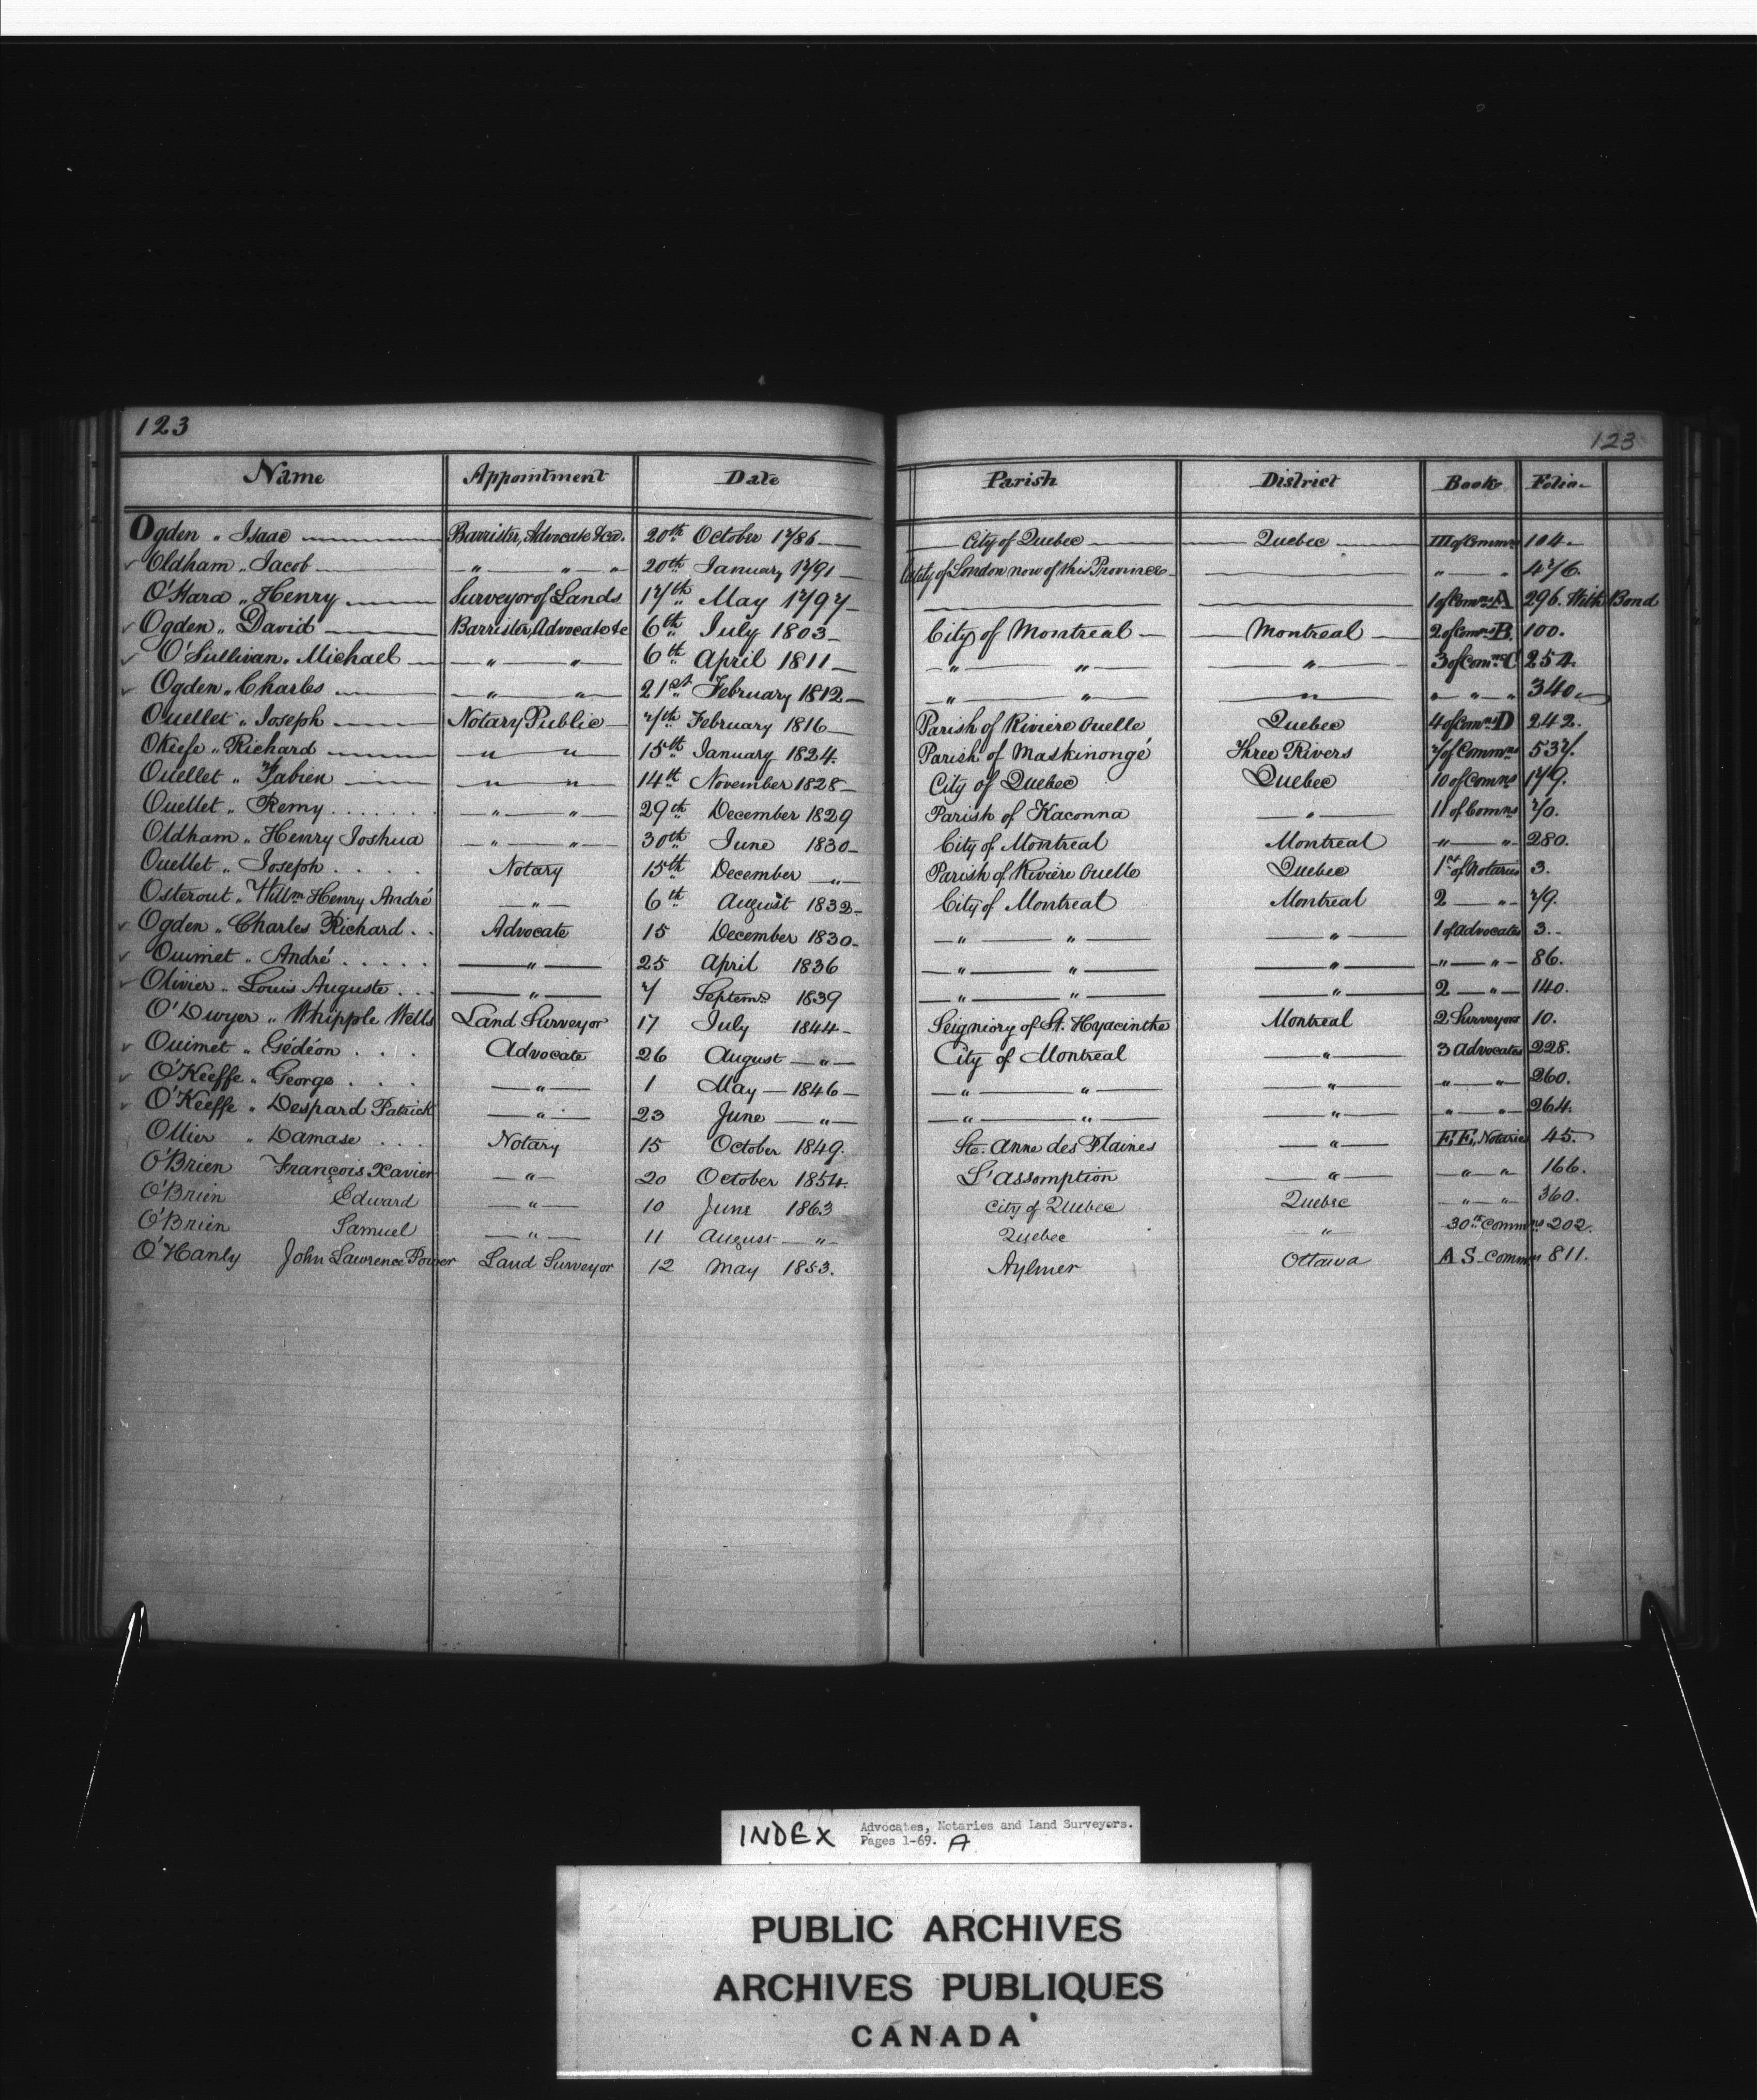 123
123
Name Appointment Date Parish District Book Folio
Ogden „ Isaac Barrister, Advocate &ca. 20th October 1786 City of Quebec Quebec III of Comms 104
Oldham „ Jacob „ „ „ 20th January 1791 City of London now of this Province „ „ 476.
O'Hara „ Henry Surveyor of Lands 17th May 1797 1 of Comns A 296. With Bond
Ogden „ David Barrister, Advocate &c 6th July 1803 City of Montreal Montreal 2 of Comns B. 100.
O'Sullivan „ Michael „ „ 6th April 1811 „ „ „ 3 of Comns C 254.
Ogden „ Charles „ „ 21st February 1812 „ „ „ „ „ „ 340
Ouellet „ Joseph Notary Public 7th February 1816 Parish of Riviere Ouelle Quebec 4 of Comns D 242.
OKeefe „ Richard „ „ 15th January 1824. Parish of Maskinongé Three Rivers 7 of Comms 537.
Ouellet „ Fabien „ „ 14th November 1828 City of Quebec Quebec 10 of Comns 179.
Ouellet „ Remy . . . . . . . „ „ 29th December 1829 Parish of Kaconna „ 11 of Comns 70.
Oldham „ Henry Joshua „ „ 30th June 1830 City of Montreal Montreal „ „ 280.
Ouellet „ Joseph . . . . . Notary 15th December „ Parish of Riviere Ouelle Quebec 1st of Notaries 3.
Osterout „ Willm Henry André „ 6th August 1832 City of Montreal Montreal 2 „ 79.
Ogden „ Charles Richard . . Advocate 15 December 1830 „ „ „ 1 of Advocates 3.
Ouimet „ André . . . . . „ 25 April 1836 „ „ „ „ „ 86.
Olivier „ Louis Auguste . . . „ 7 Septemr 1839 „ „ „ 2 „ 140.
O'Dwyer „ Whipple Wells Land Surveyor 17 July 1844 Seigniory of St. Hyacinthe Montreal 2 Surveyors 10.
Ouimet „ Gédéon . . . Advocate 26 August „ City of Montreal „ 3 Advocates 228.
O'Keeffe „ George . . . „ 1 May 1846 „ „ „ „ „ 260.
O'Keeffe „ Despard Patrick „ 23 June „ „ „ „ „ „ 264.
Ollier „ Damase . . . Notary 15 October 1849. Ste. Anne des Plaines „ E.E. Notaries 45.
O'Brien François Xavier „ 20 October 1854. L'assomption „ „ „ 166.
O'Brien Edward „ 10 June 1863 City of Quebec Quebec „ „ 360.
O'Brien Samuel „ 11 August „ Quebec „ 30th Commns 202.
O'Hanly John Lawrence Power Land Surveyor 12 May 1853. Aylmer Ottawa A S Commn 811.
INDEX Advocates, Notaries and Land Surveyors.
Pages 1-69. A
PUBLIC ARCHIVES
ARCHIVES PUBLIQUES
CANADA